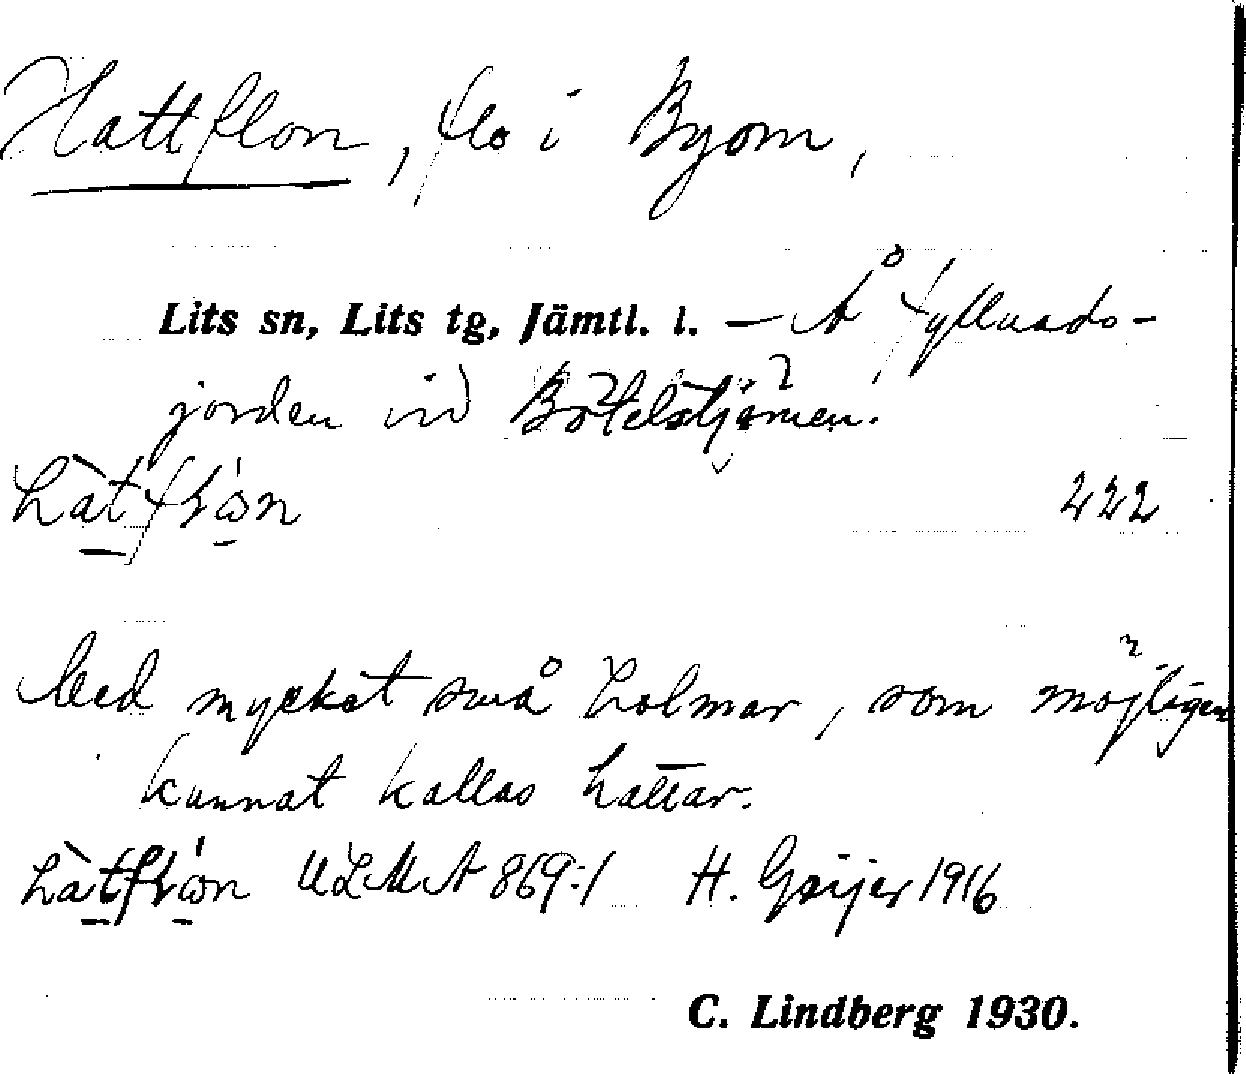 Hattflon, flo i Byom,
Lits sn, Lits tg, Jämtl. l. – Å Fyllsands-
jorden vid Bötelstjärnen.
222
Med mycket små holmar, som möjligen
kunnat kallas hattar.
ULMA 869:1 H. Geijer 1916
C. Lindberg 1930.